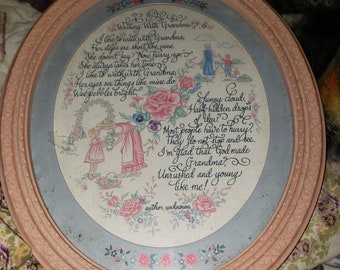 Walking With Grandma
I like to walk with Grandma,
Her steps are short like mine.
She doesn't say "Now hurry up!"
She always takes her time.
I like to walk with Grandma,
Her eyes see things like mine do.
Wee pebbles bright,
a funny cloud,
Half hidden drops
of dew.
Most people have to hurry,
They do not stop and see.
I'm glad that God made
Grandma
Unrushed and young
like me!
author unknown